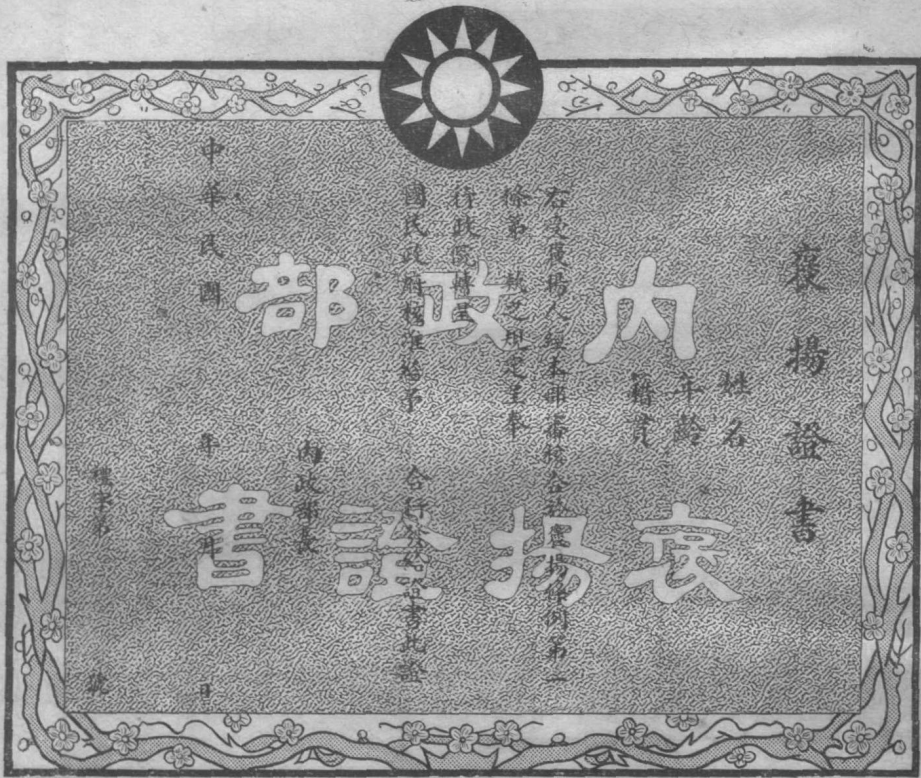 褒揚證書
姓名
年齡
籍貫
右受褒揚人經本部審核合於褒揚條例第一
條第　款之規定呈奉
行政院轉呈
國民政府核准給予　合行發給證書此證
內政部長
中華民國　年　月　日
禮字第　號
內政部
褒揚證書